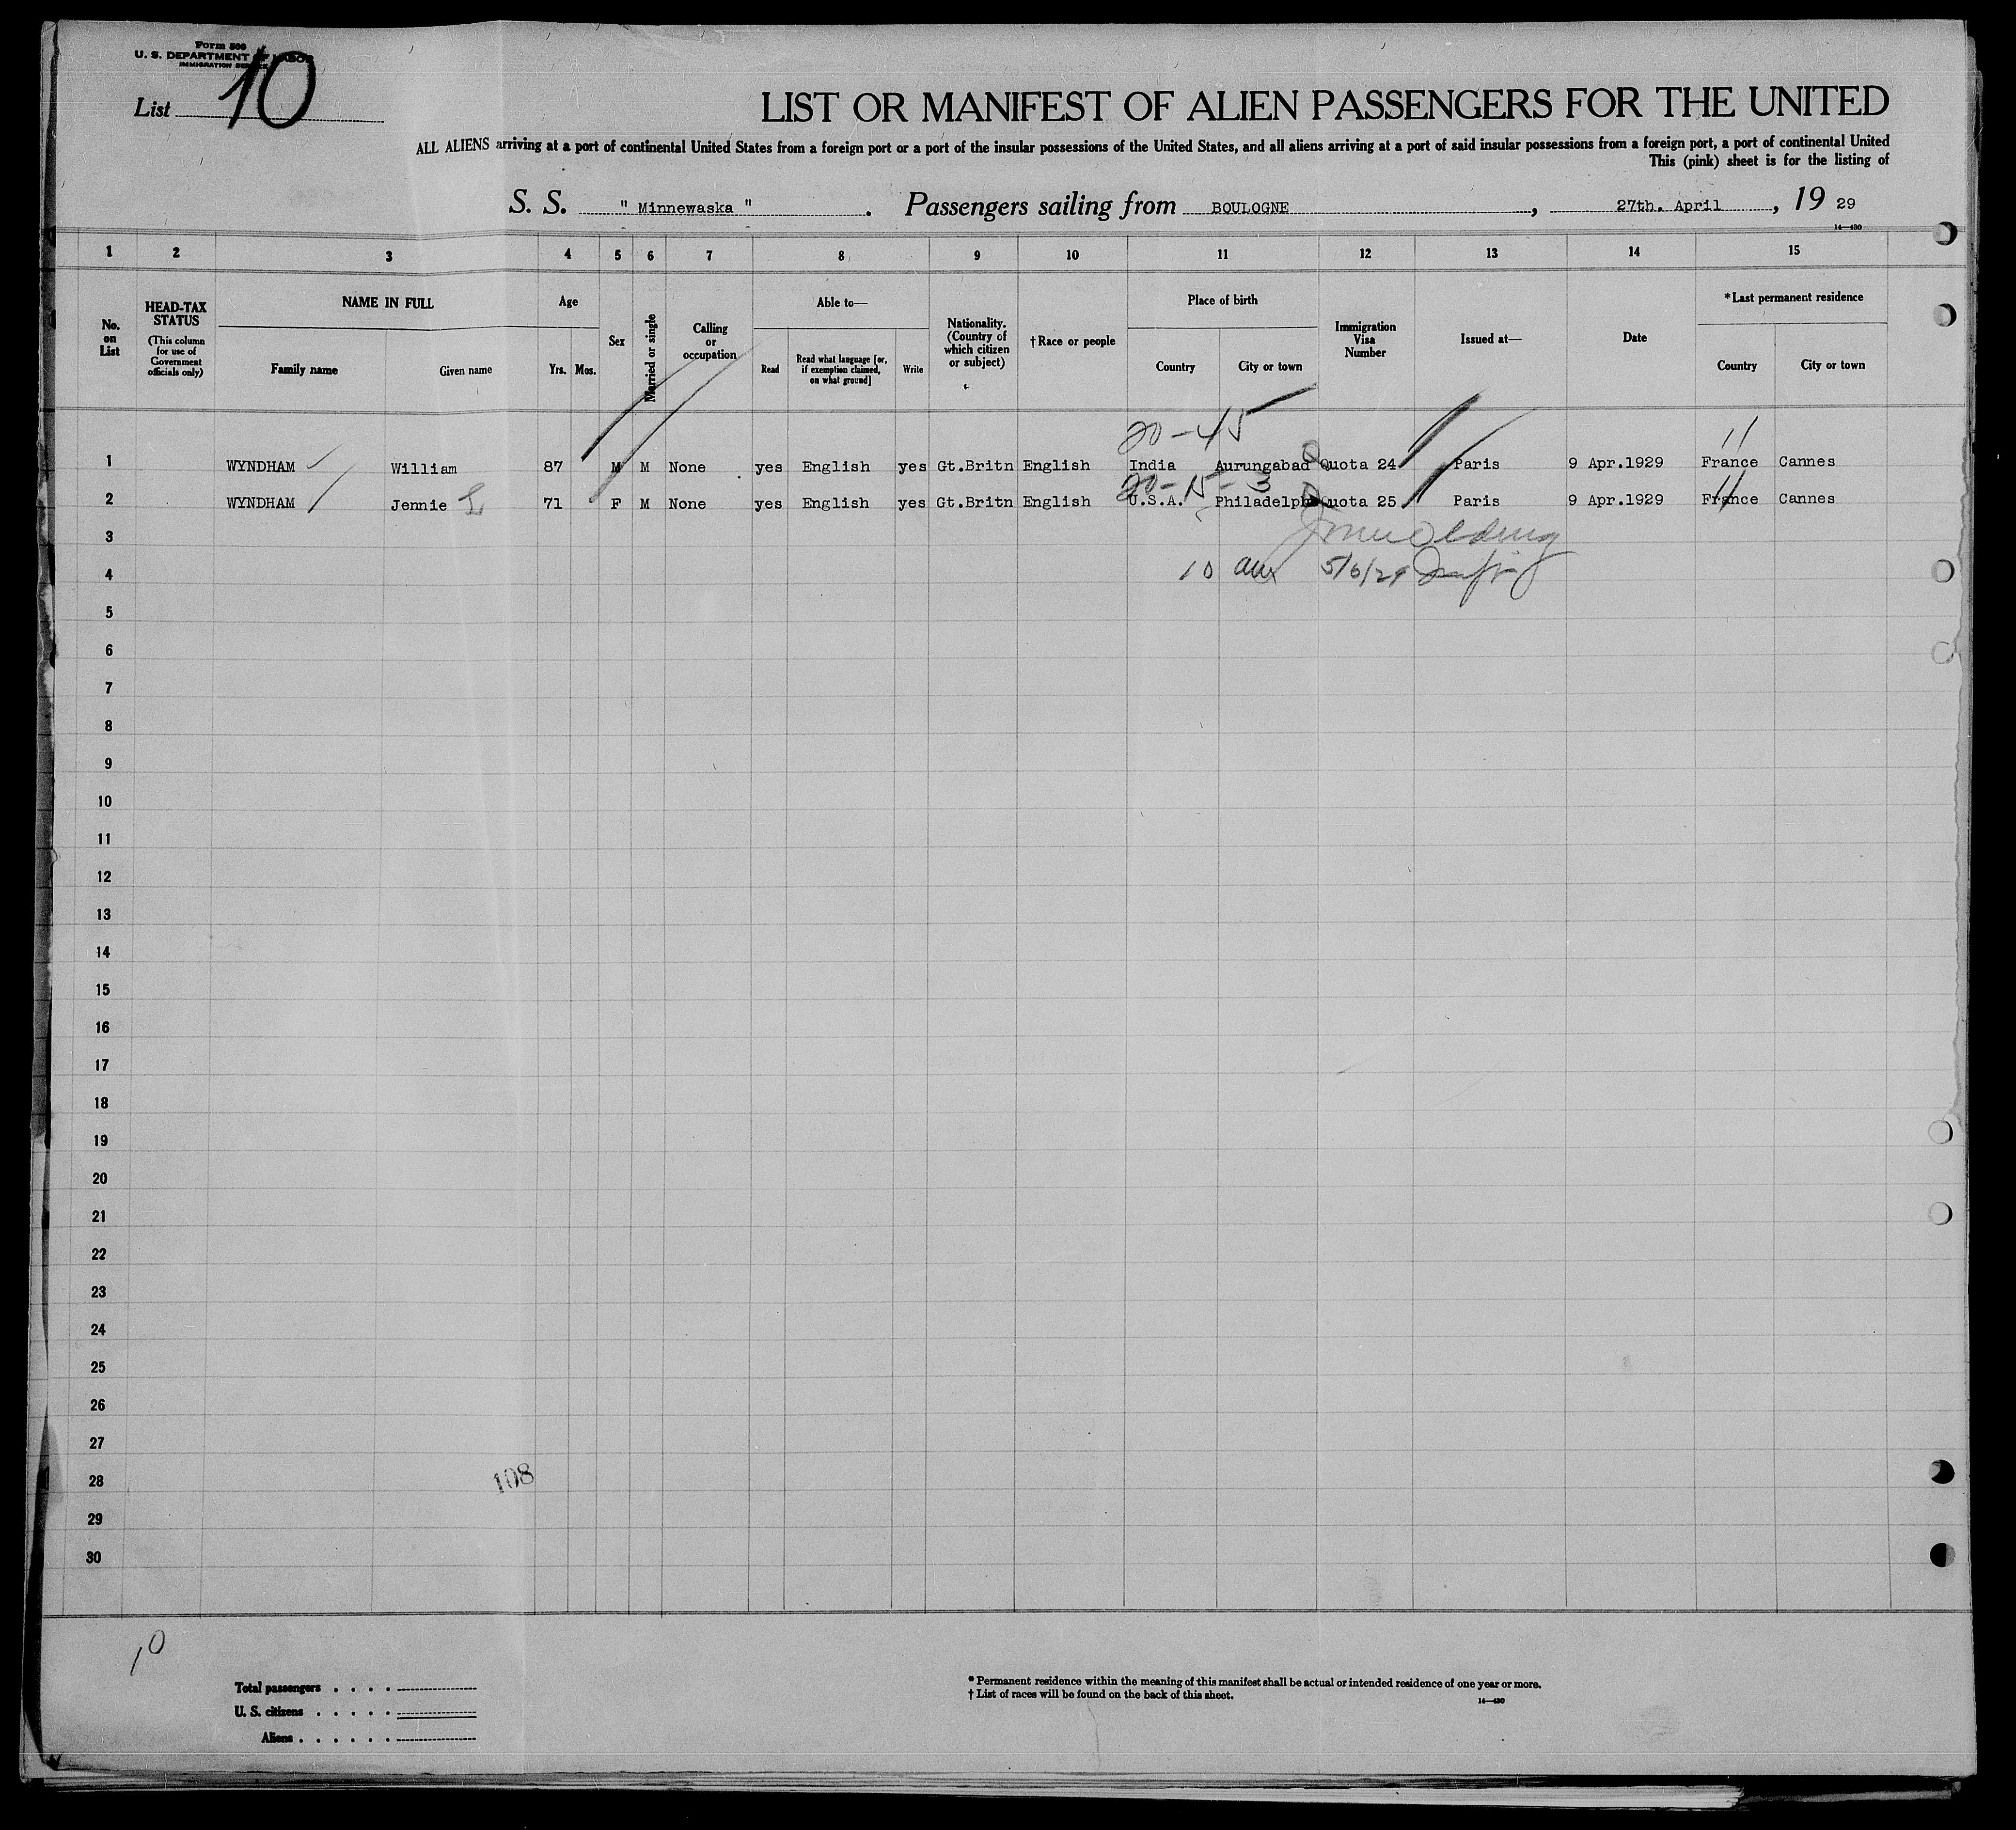 Form 500
U. S. DEPARTMENT OF LABOR
IMMIGRATION SERVICE
List 10
LIST OR MANIFEST OF ALIEN PASSENGERS FOR THE UNITED
ALL ALIENS arriving at a port of continental United States from a foreign port or a port of the insular possessions of the United States, and all aliens arriving at a port of said insular possessions from a foreign port, a port of continental United
This (pink) sheet is for the listing of
S. S. " Minnewaska ". Passengers sailing from BOULOGNE, 27th. April, 19 29
14—430
1 2 3 4 5 6 7 8 9 10 11 12 13 14 15
No. on List
HEAD-TAX STATUS
(This column for use of Government officials only)
NAME IN FULL
Family name Given name
Age
Yrs. Mos.
Sex
Married or single
Calling or occupation
Able to—
Read
Read what language [or, if exemption claimed, on what ground]
Write
Nationality. (Country of which citizen or subject)
†Race or people
Place of birth
Country City or town
Immigration Visa Number
Issued at—
Date
*Last permanent residence
Country City or town
20-45
1 WYNDHAM William 87 M M None yes English yes Gt.Britn English India Aurungabad Quota 24 Paris 9 Apr.1929 France Cannes
20-15-3
2 WYNDHAM Jennie L 71 F M None yes English yes Gt.Britn English U.S.A. Philadelpha Quota 25 Paris 9 Apr.1929 France Cannes
3
4 10 am 5/6/29
5
6
7
8
9
10
11
12
13
14
15
16
17
18
19
20
21
22
23
24
25
26
27
28 108
29
30
10
Total passengers
U. S. citizens
Aliens
* Permanent residence within the meaning of this manifest shall be actual or intended residence of one year or more.
† List of races will be found on the back of this sheet.
14—430